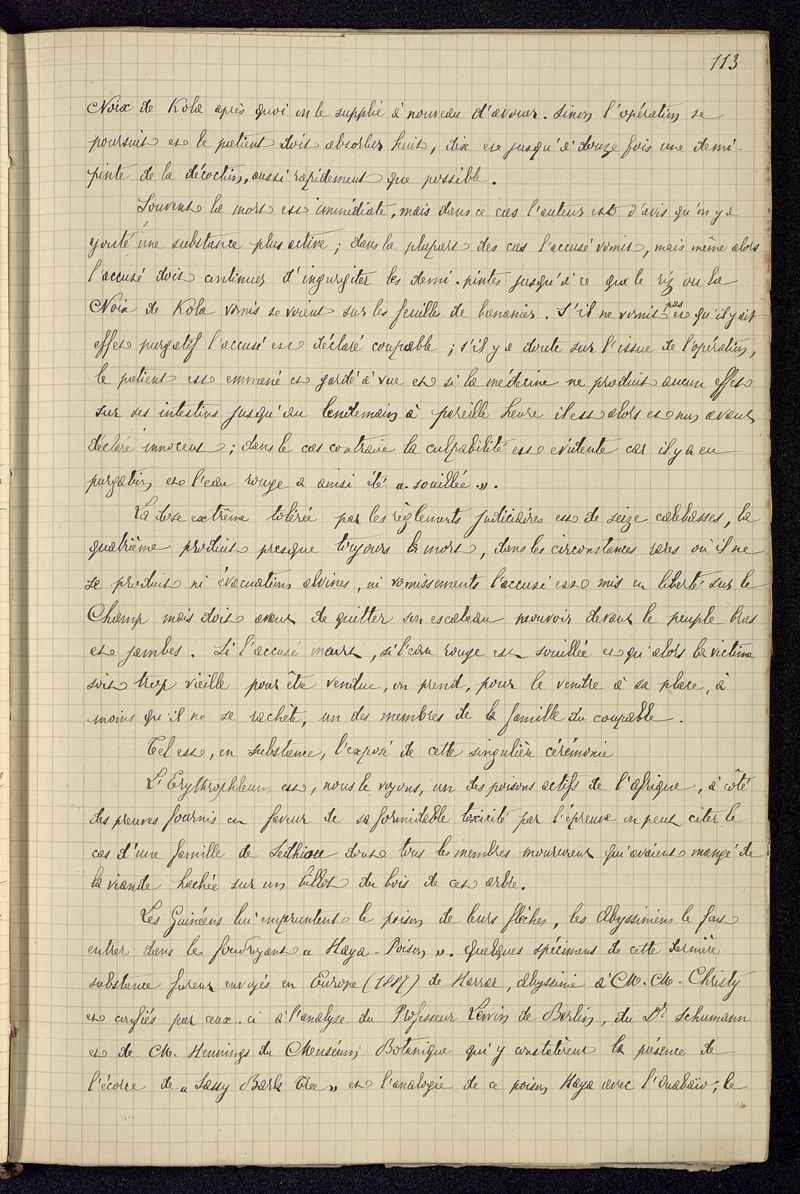 113
Noix de Kola après quoi on le supplie à nouveau d'avouer. Sinon l'opération se
poursuit et le patient doit absorber huit, dix et jusqu'à douze fois une demi-
pinte de la décoction, aussi rapidement que possible.
Souvent la mort est immédiate, mais dans ce cas l'auteur est d'avis qu'on y a
ajouté une substance plus active ; dans la plupart des cas l'accusé vomit, mais même alors
l'accusé doit continuer d'ingurgiter les demi-pintes jusqu'à ce que le riz ou la
Noix de Kola vomis se voient sur les feuilles de bananier. S'il ne vomit pas et qu'il y ait
effet purgatif l'accusé est déclaré coupable ; s'il y a doute sur l'issue de l'opération,
le patient est emmené et gardé à vue et si la médecine ne produit aucun effet
sur ses intestins jusqu'au lendemain à pareille heure il est alors et non avant
déclaré innocent ; dans le cas contraire la culpabilité est évidente car il y a eu
purgation et l'eau rouge a ainsi été « souillée ».
La dose extrême tolérée par les règlements judiciaires est de seize calebasses, la
quatrième produit presque toujours la mort, dans les circonstances rares où il ne
se produit ni évacuations alvines, ni vomissements l'accusé est mis en liberté sur le
Champ mais doit avant de quitter son escabeau mouvoir devant le peuple bras
et jambes. Si l'accusé meurt, si l'eau rouge est souillée et qu'alors la victime
soit trop vieille pour être vendue, on prend, pour le vendre à sa place, à
moins qu'il ne se rachète, un des membres de la famille du coupable.
Tel est, en substance, l'exposé de cette singulière cérémonie
L'Erythrophleum est, nous le voyons, un des poisons actifs de l'Afrique, à côté
des preuves fournis en faveur de sa formidable toxicité par l'épreuve on peut citer le
cas d'une famille de dont tous les membres moururent qui avaient mangé de
la viande hachée sur un billot du bois de cet arbre.
Les Guinéens lui empruntent le poison de leurs flèches, les Abyssiniens le font
entrer dans le foudroyant « Haya-Poison ». Quelques spécimens de cette dernière
substance furent envoyés en Europe (1887) de Harrar, Abyssinie à M.M. Christy
et confiés par ceux-ci à l'analyse du Professeur Lewin de Berlin, du Dr Schumann
et de M. Hennings du Meuséum Botanique qui y constatèrent la présence de
l'écorce de « Sassy Bark Tree » et l'analogie de ce poison Haya avec l'Ouabaïo ; le